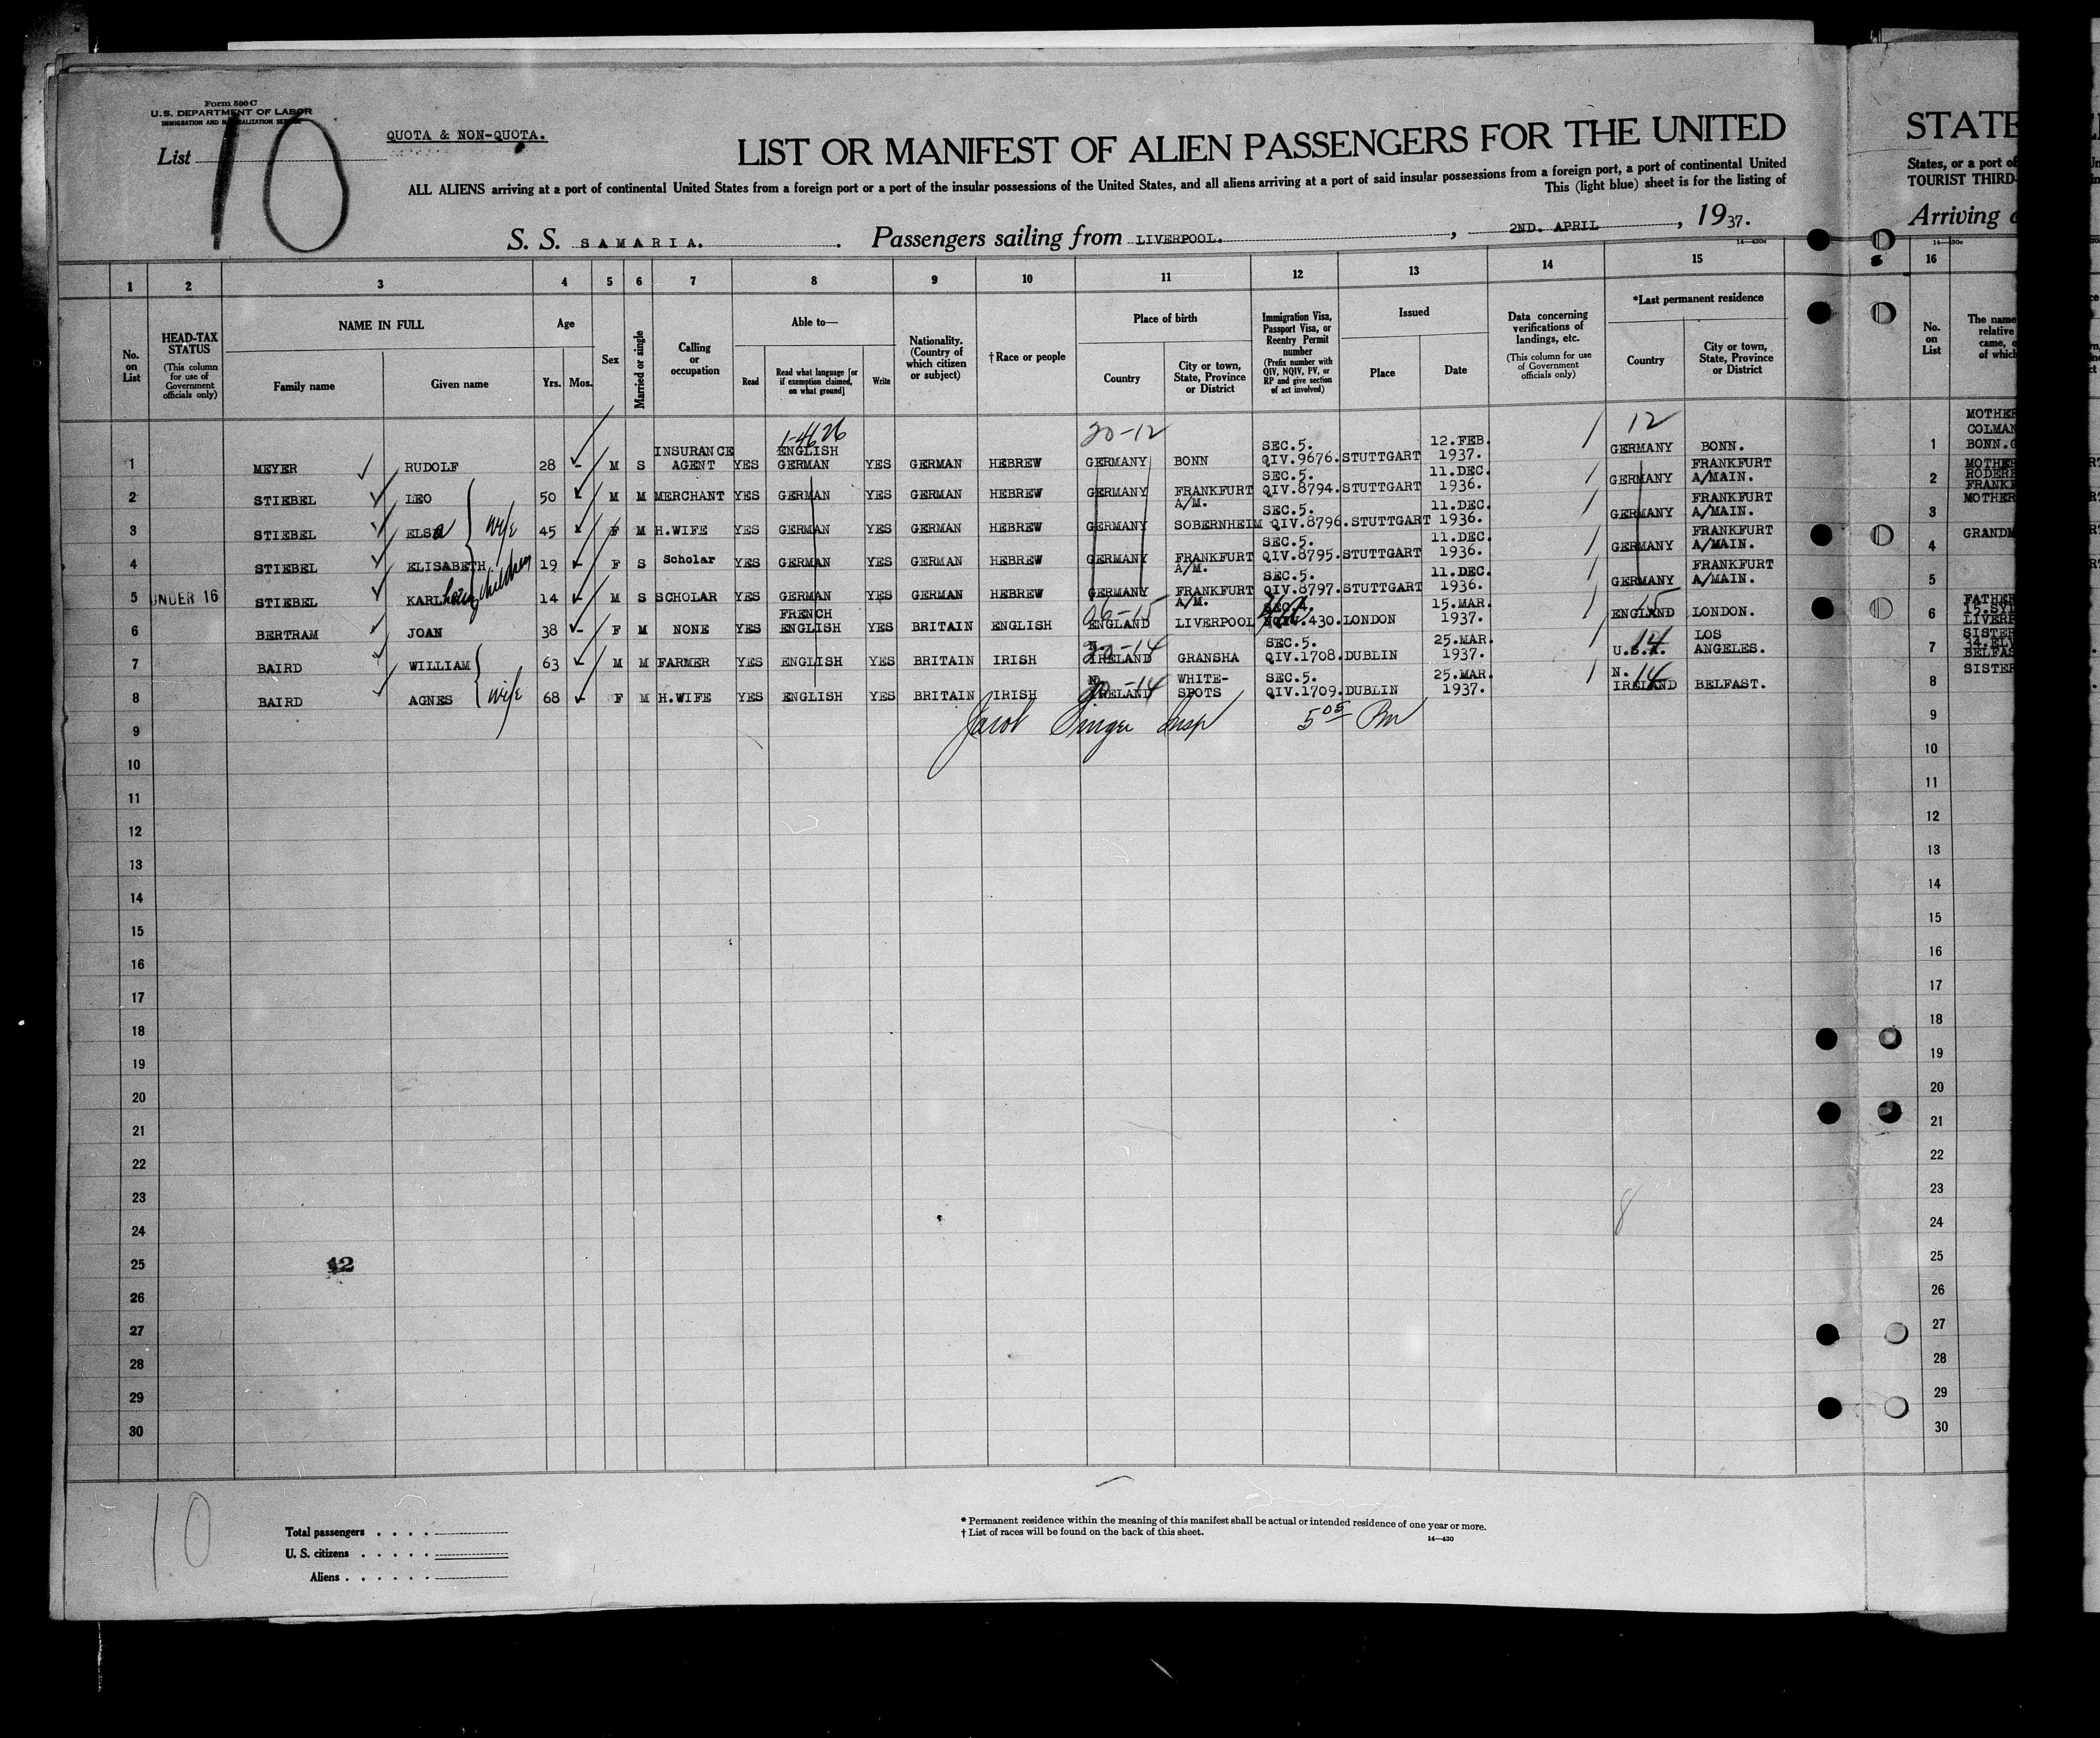 Form 500 C
U.S. DEPARTMENT OF LABOR
IMMIGRATION AND NATURALIZATION SERVICE
List 10
QUOTA & NON-QUOTA.
LIST OR MANIFEST OF ALIEN PASSENGERS FOR THE UNITED
ALL ALIENS arriving at a port of continental United States from a foreign port or a port of the insular possessions of the United States, and all aliens arriving at a port of said insular possessions from a foreign port, a port of continental United
This (light blue) sheet is for the listing of
S. S. SAMARIA. Passengers sailing from LIVERPOOL., 2ND. APRIL, 1937.
STATE
States, or a port of
TOURIST THIRD-
Arriving a
14—430c 14—430c
1 2 3 4 5 6 7 8 9 10 11 12 13 14 15 16
No. on List
HEAD-TAX STATUS (This column for use of Government officials only)
NAME IN FULL
Family name Given name
Age
Yrs. Mos.
Sex
Married or single
Calling or occupation
Able to—
Read
Read what language [or if exemption claimed, on what ground]
Write
Nationality. (Country of which citizen or subject)
† Race or people
Place of birth
Country
City or town, State, Province or District
Immigration Visa, Passport Visa, or Reentry Permit number (Prefix number with QIV, NQIV, PV, or RP and give section of act involved)
Issued
Place Date
Data concerning verifications of landings, etc. (This column for use of Government officials only)
*Last permanent residence
Country
City or town, State, Province or District
No. on List
The name
relative
came, o
of which
1-4626 20-12 12
1 MEYER RUDOLF 28 - M S INSURANCE AGENT YES ENGLISH GERMAN YES GERMAN HEBREW GERMANY BONN SEC.5. QIV.9676. STUTTGART 12.FEB. 1937. GERMANY BONN. 1 MOTHER COLMAN BONN.G
2 STIEBEL LEO 50 M M MERCHANT YES GERMAN YES GERMAN HEBREW GERMANY FRANKFURT A/M. SEC.5. QIV.8794. STUTTGART 11.DEC. 1936. GERMANY FRANKFURT A/MAIN. 2 MOTHER RODERB FRANKF
3 STIEBEL ELSA wife 45 F M H.WIFE YES GERMAN YES GERMAN HEBREW GERMANY SOBERNHEIM SEC.5. QIV.8796. STUTTGART 11.DEC. 1936. GERMANY FRANKFURT A/MAIN. 3 MOTHER
4 STIEBEL ELISABETH children 19 F S Scholar YES GERMAN YES GERMAN HEBREW GERMANY FRANKFURT A/M. SEC.5. QIV.8795. STUTTGART 11.DEC. 1936. GERMANY FRANKFURT A/MAIN. 4 GRANDM
5 UNDER 16 STIEBEL KARL 14 M S SCHOLAR YES GERMAN YES GERMAN HEBREW GERMANY FRANKFURT A/M. SEC.5. QIV.8797. STUTTGART 11.DEC. 1936. GERMANY FRANKFURT A/MAIN. 5
6 BERTRAM JOAN 38 - F M NONE YES FRENCH ENGLISH YES BRITAIN ENGLISH 06-15 ENGLAND LIVERPOOL 430. LONDON 15.MAR. 1937. 15 ENGLAND LONDON. 6 FATHER 15.SYD LIVERP
7 BAIRD WILLIAM 63 M M FARMER YES ENGLISH YES BRITAIN IRISH N. IRELAND 20-14 GRANSHA SEC.5. QIV.1708. DUBLIN 25.MAR. 1937. U.S.A. 14 LOS ANGELES. 7 SISTER 34.ELV BELFAS
8 BAIRD AGNES wife 68 F M H.WIFE YES ENGLISH YES BRITAIN IRISH N. IRELAND 20-14 WHITE-SPOTS SEC.5. QIV.1709. DUBLIN 25.MAR. 1937. N. IRELAND 14 BELFAST. 8 SISTER
9 Jacob Singer Insp 5 05 PM 9
10 10
11 11
12 12
13 13
14 14
15 15
16 16
17 17
18 18
19 19
20 20
21 21
22 22
23 8 23
24 24
25 12 25
26 26
27 27
28 28
29 29
30 30
10
Total passengers . . . .
U. S. citizens . . . . .
Aliens . . . . . .
* Permanent residence within the meaning of this manifest shall be actual or intended residence of one year or more.
† List of races will be found on the back of this sheet.
14—430